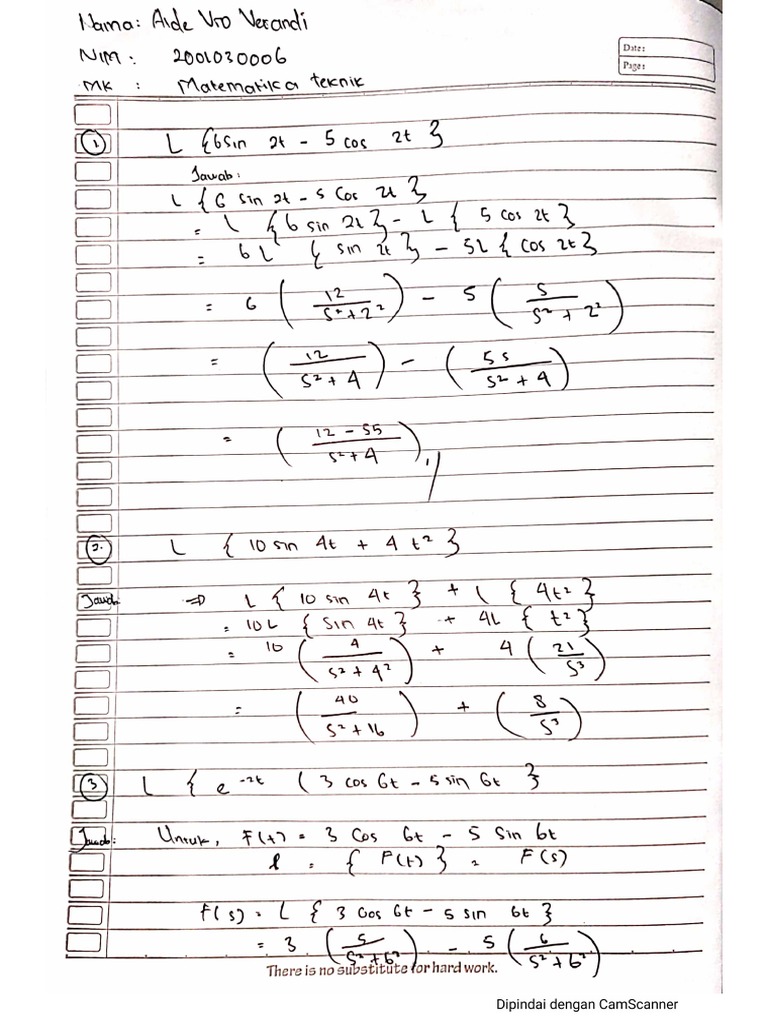 Nama: Aide Vio Verandi
NIM : 2001030006
MK : Matematika teknik
Date:
Page:
1 L {6 sin 2t - 5 cos 2t }
Jawab:
L { 6 sin 2t - 5 cos 2t }
= L { 6 sin 2t } - L { 5 cos 2t }
= 6 L { sin 2t } - 5L { cos 2t }
= 6 ( 12 / s² + 2² ) - 5 ( s / s² + 2² )
= ( 12 / s² + 4 ) - ( 5s / s² + 4 )
= ( 12 - 5s / s² + 4 ) ,//
2. L { 10 sin 4t + 4 t² }
Jawab: ⇒ L { 10 sin 4t } + L { 4t² }
= 10L { sin 4t } + 4L { t² }
= 10 ( 4 / s² + 4² ) + 4 ( 2! / s³ )
= ( 40 / s² + 16 ) + ( 8 / s³ )
3 L { e⁻²ᵗ ( 3 cos 6t - 5 sin 6t }
Jawab: Untuk, F(t) = 3 cos 6t - 5 sin 6t
l = { F(t) } = F(s)
F(s) = L { 3 cos 6t - 5 sin 6t }
= 3 ( s / s² + 6² ) - 5 ( 6 / s² + 6² )
There is no substitute for hard work.
Dipindai dengan CamScanner